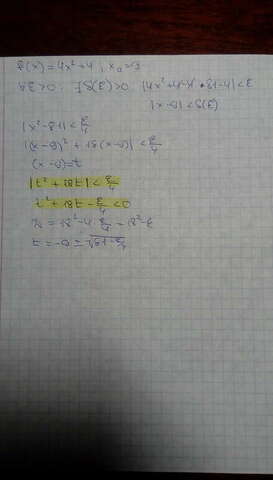 f(x) = 4x² + 4, x₀ = 9
∀ε > 0 : ∃δ(ε) > 0 : |4x² + 4 - 4 · 81 - 4| < ε
|x - 9| < δ(ε)
|x² - 81| < ε/4
|(x - 9)² + 18(x - 9)| < ε/4
(x - 9) = t
|t² + 18t| < ε/4
t² + 18t - ε/4 < 0
D = 18² - 4 · ε/4 = 18² - ε
t = -9 ± √81 - ε/4